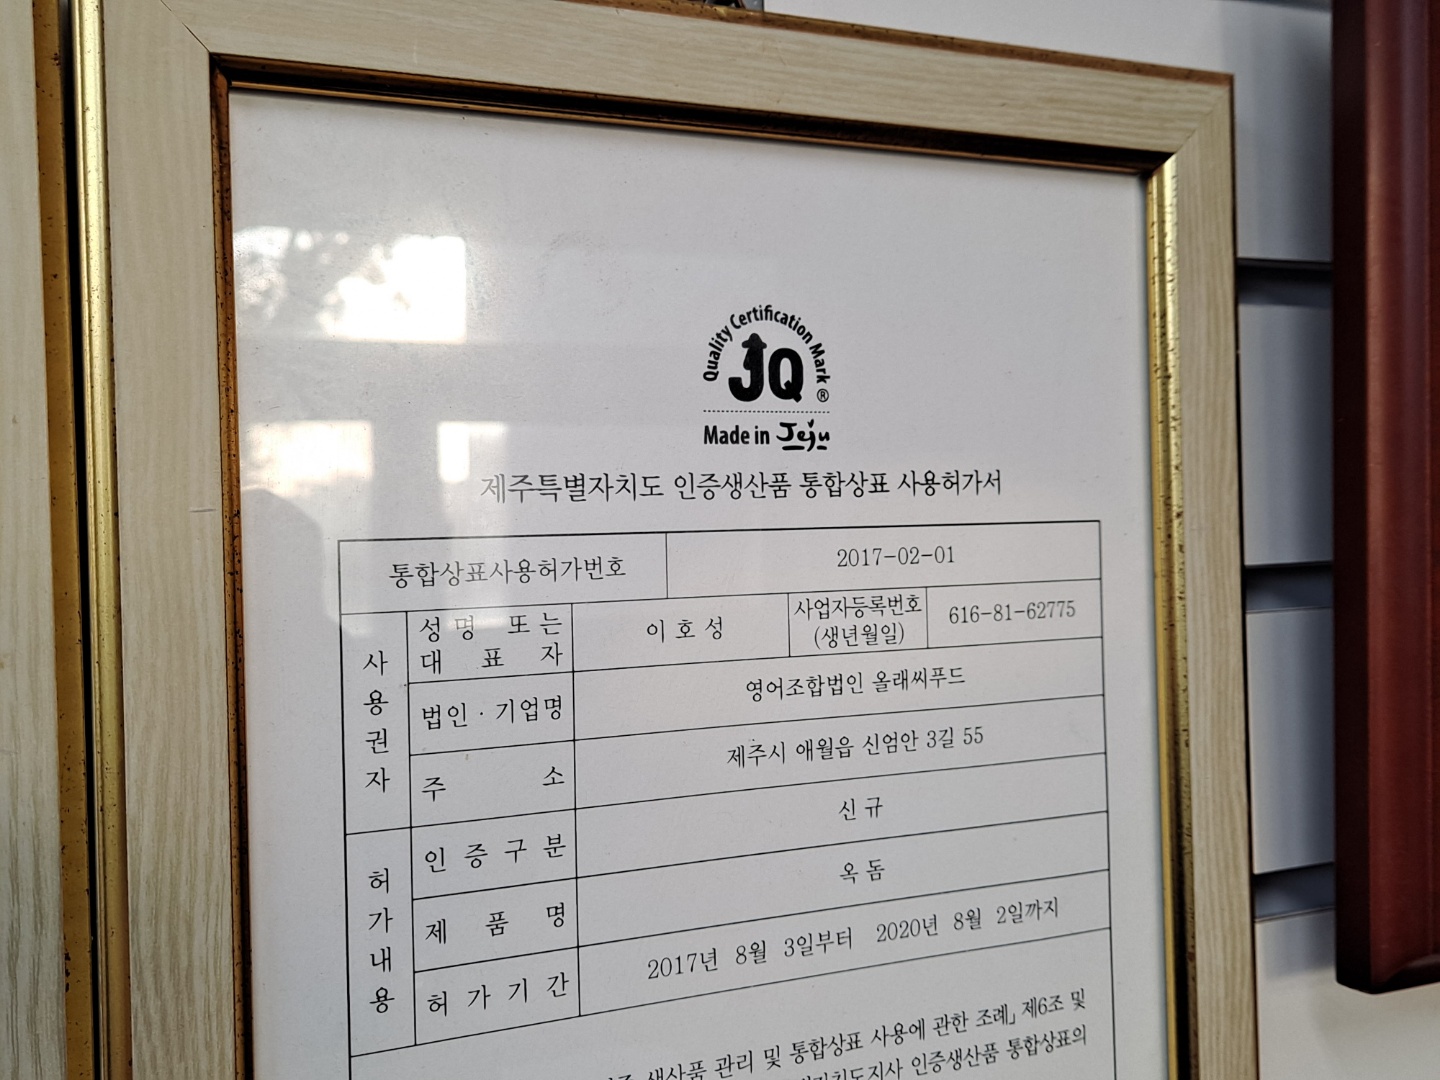 Quality Certification Mark
JQ ®
Made in Jeju
제주특별자치도 인증생산품 통합상표 사용허가서
통합상표사용허가번호 2017-02-01
사용권자
성명 또는 대표자 이호성 사업자등록번호 (생년월일) 616-81-62775
법인·기업명 영어조합법인 올래씨푸드
주소 제주시 애월읍 신엄안 3길 55
허가내용
인증구분 신규
제품명 옥돔
허가기간 2017년 8월 3일부터 2020년 8월 2일까지
생산품 관리 및 통합상표 사용에 관한 조례」 제6조 및
인증생산품 통합상표의